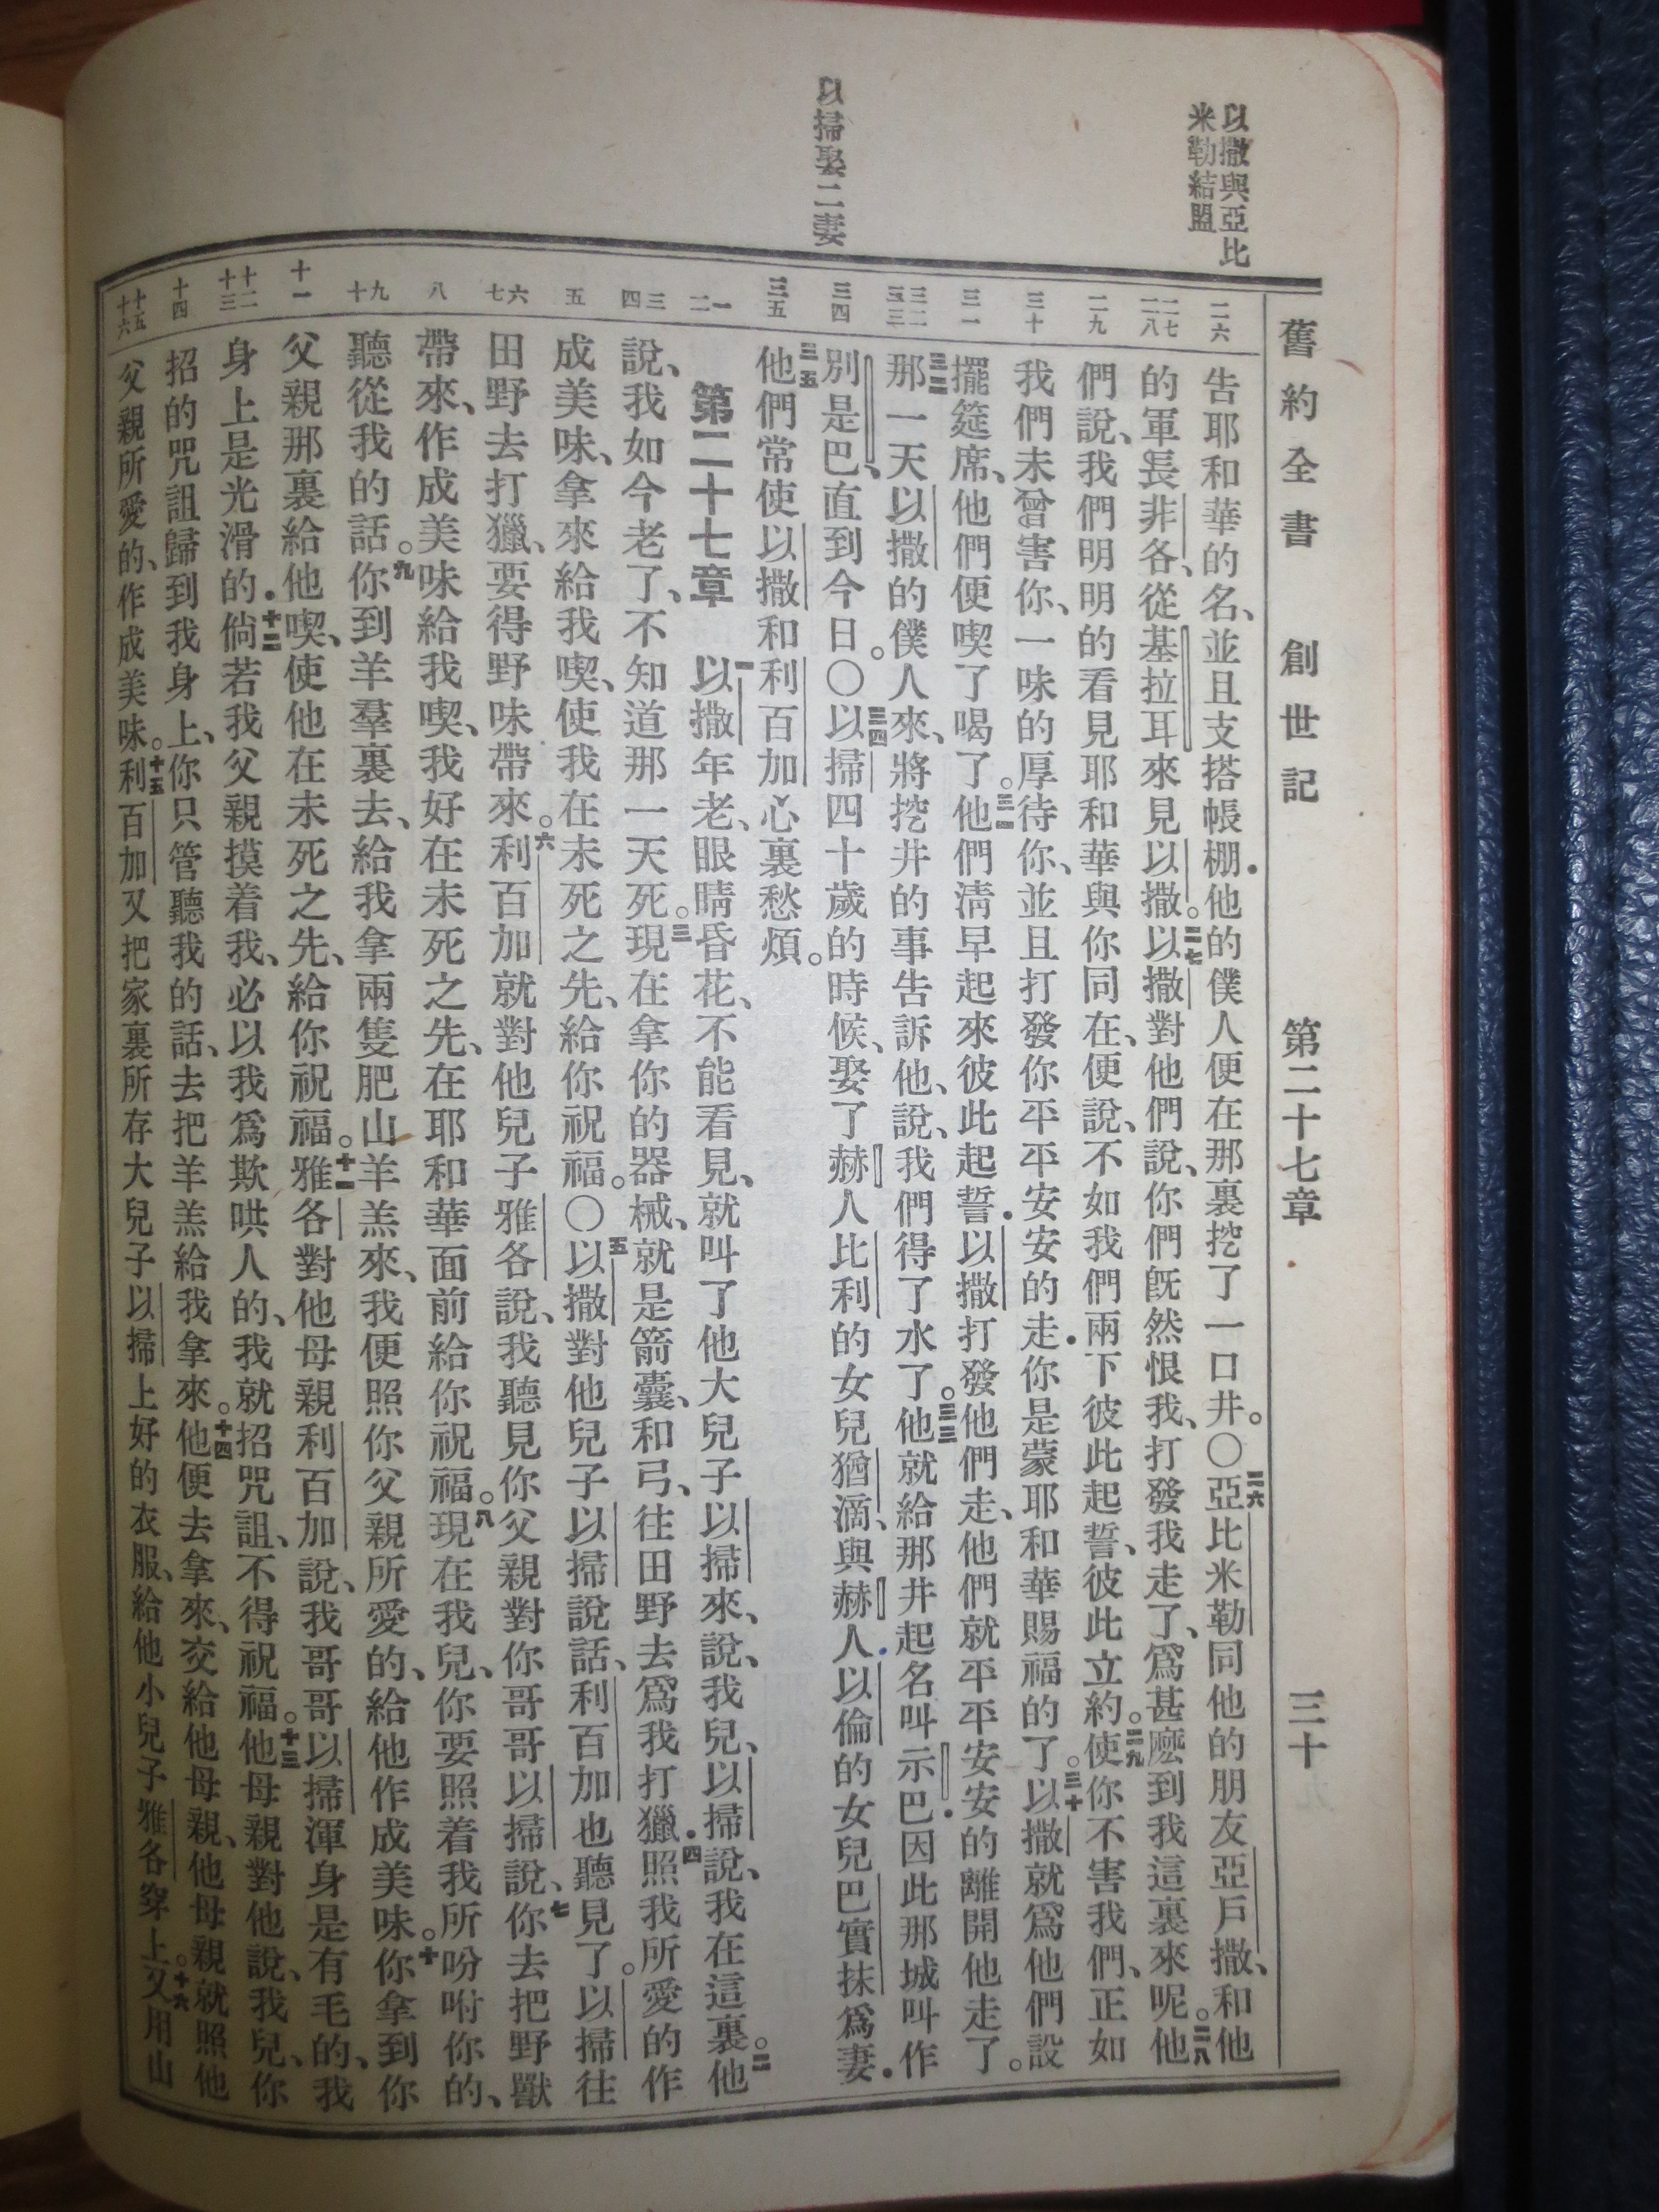 舊約全書 創世記 第二十七章 三十
以撒與亞比
米勒結盟
以掃娶二妻
二六
二七 二八
二九
三十
三一
三二 三三
三四
三五
一 二
三 四
五
六 七
八
九 十
十一
十二 十三
十四
十五 十六
告耶和華的名、並且支搭帳棚．他的僕人便在那裏挖了一口井。○二六亞比米勒同他的朋友亞戶撒、和他
的軍長非各、從基拉耳來見以撒。二七以撒對他們說、你們旣然恨我、打發我走了、爲甚麽到我這裏來呢。二八他
們說、我們明明的看見耶和華與你同在、便說、不如我們兩下彼此起誓、彼此立約。二九使你不害我們、正如
我們未曾害你、一味的厚待你、並且打發你平平安安的走．你是蒙耶和華賜福的了。三十以撒就爲他們設
擺筵席、他們便喫了喝了。三一他們淸早起來彼此起誓．以撒打發他們走、他們就平平安安的離開他走了。
三二那一天以撒的僕人來、將挖井的事告訴他、說、我們得了水了。三三他就給那井起名叫示巴．因此那城叫作
別是巴、直到今日。○三四以掃四十歲的時候、娶了赫人比利的女兒猶滴、與赫人以倫的女兒巴實抹爲妻．
三五他們常使以撒和利百加心裏愁煩。
第二十七章 一以撒年老、眼睛昏花、不能看見、就叫了他大兒子以掃來、說、我兒、以掃說、我在這裏。二他
說、我如今老了、不知道那一天死。三現在拿你的器械、就是箭囊、和弓、往田野去爲我打獵．四照我所愛的作
成美味、拿來給我喫、使我在未死之先、給你祝福。○五以撒對他兒子以掃說話、利百加也聽見了。以掃往
田野去打獵、要得野味帶來。六利百加就對他兒子雅各說、我聽見你父親對你哥哥以掃說、七你去把野獸
帶來、作成美味給我喫、我好在未死之先、在耶和華面前給你祝福。八現在我兒、你要照着我所吩咐你的、
聽從我的話。九你到羊羣裏去、給我拿兩隻肥山羊羔來、我便照你父親所愛的、給他作成美味。十你拿到你
父親那裏給他喫、使他在未死之先、給你祝福。十一雅各對他母親利百加說、我哥哥以掃渾身是有毛的、我
身上是光滑的．十二倘若我父親摸着我、必以我爲欺哄人的、我就招咒詛、不得祝福。十三他母親對他說、我兒、你
招的咒詛歸到我身上、你只管聽我的話、去把羊羔給我拿來。十四他便去拿來、交給他母親、他母親就照他
父親所愛的、作成美味。十五利百加又把家裏所存大兒子以掃上好的衣服、給他小兒子雅各穿上。十六又用山